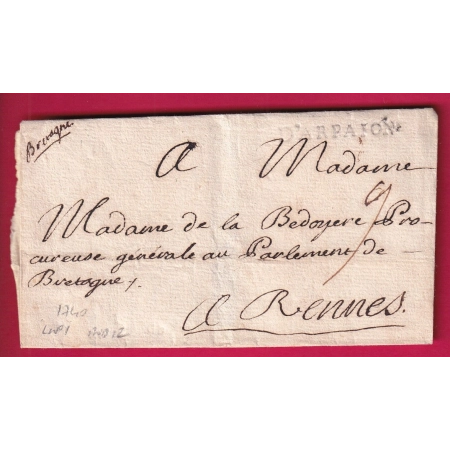 Bretagne.
D'ARPAJON
A Madame
Madame de la Bedoyere Pro
cureuse générale au Parlement de
Bretagne,
A Rennes.
9
1740